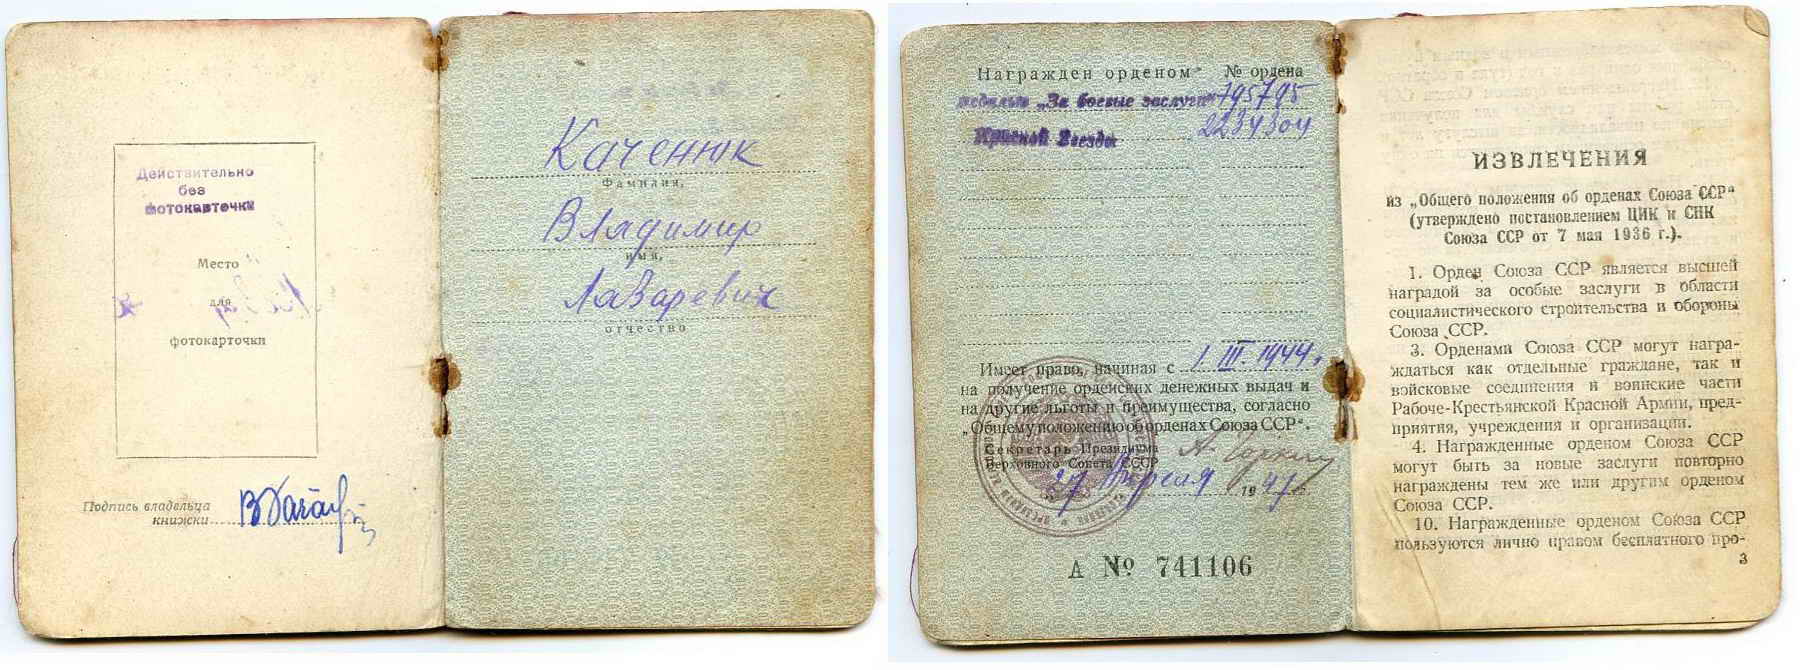 Действительно
без
фотокарточки
Место
для
фотокарточки
Подпись владельца
книжки
Каченюк
Фамилия,
Владимир
имя,
Лазаревич
отчество
Награжден орденом № ордена
медалью „За боевые заслуги" 795795
Красной Звезды 2234304
Имеет право, начиная с 1. III. 1944 г.
на получение орденских денежных выдач и
на другие льготы и преимущества, согласно
„Общему положению об орденах Союза ССР".
Секретарь Президиума
Верховного Совета СССР
А. Горкин
27 Апреля 1947 г.
А № 741106
ИЗВЛЕЧЕНИЯ
из „Общего положения об орденах Союза ССР"
(утверждено постановлением ЦИК и СНК
Союза ССР от 7 мая 1936 г.).
1. Орден Союза ССР является высшей
наградой за особые заслуги в области
социалистического строительства и обороны
Союза ССР.
3. Орденами Союза ССР могут награ-
ждаться как отдельные граждане, так и
войсковые соединения и воинские части
Рабоче-Крестьянской Красной Армии, пред-
приятия, учреждения и организации.
4. Награжденные орденом Союза ССР
могут быть за новые заслуги повторно
награждены тем же или другим орденом
Союза ССР.
10. Награжденные орденом Союза ССР
пользуются лично правом бесплатного про-
3